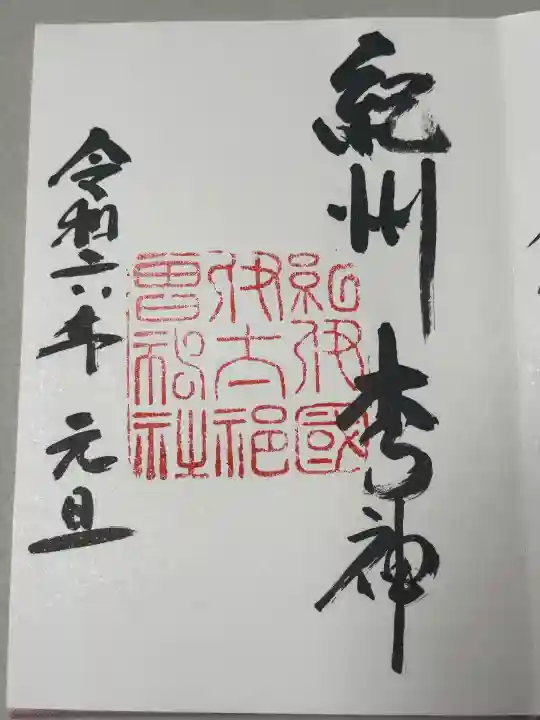 紀州 木乃神
紀伊國
伊太祁
曽神社
令和六年 元旦